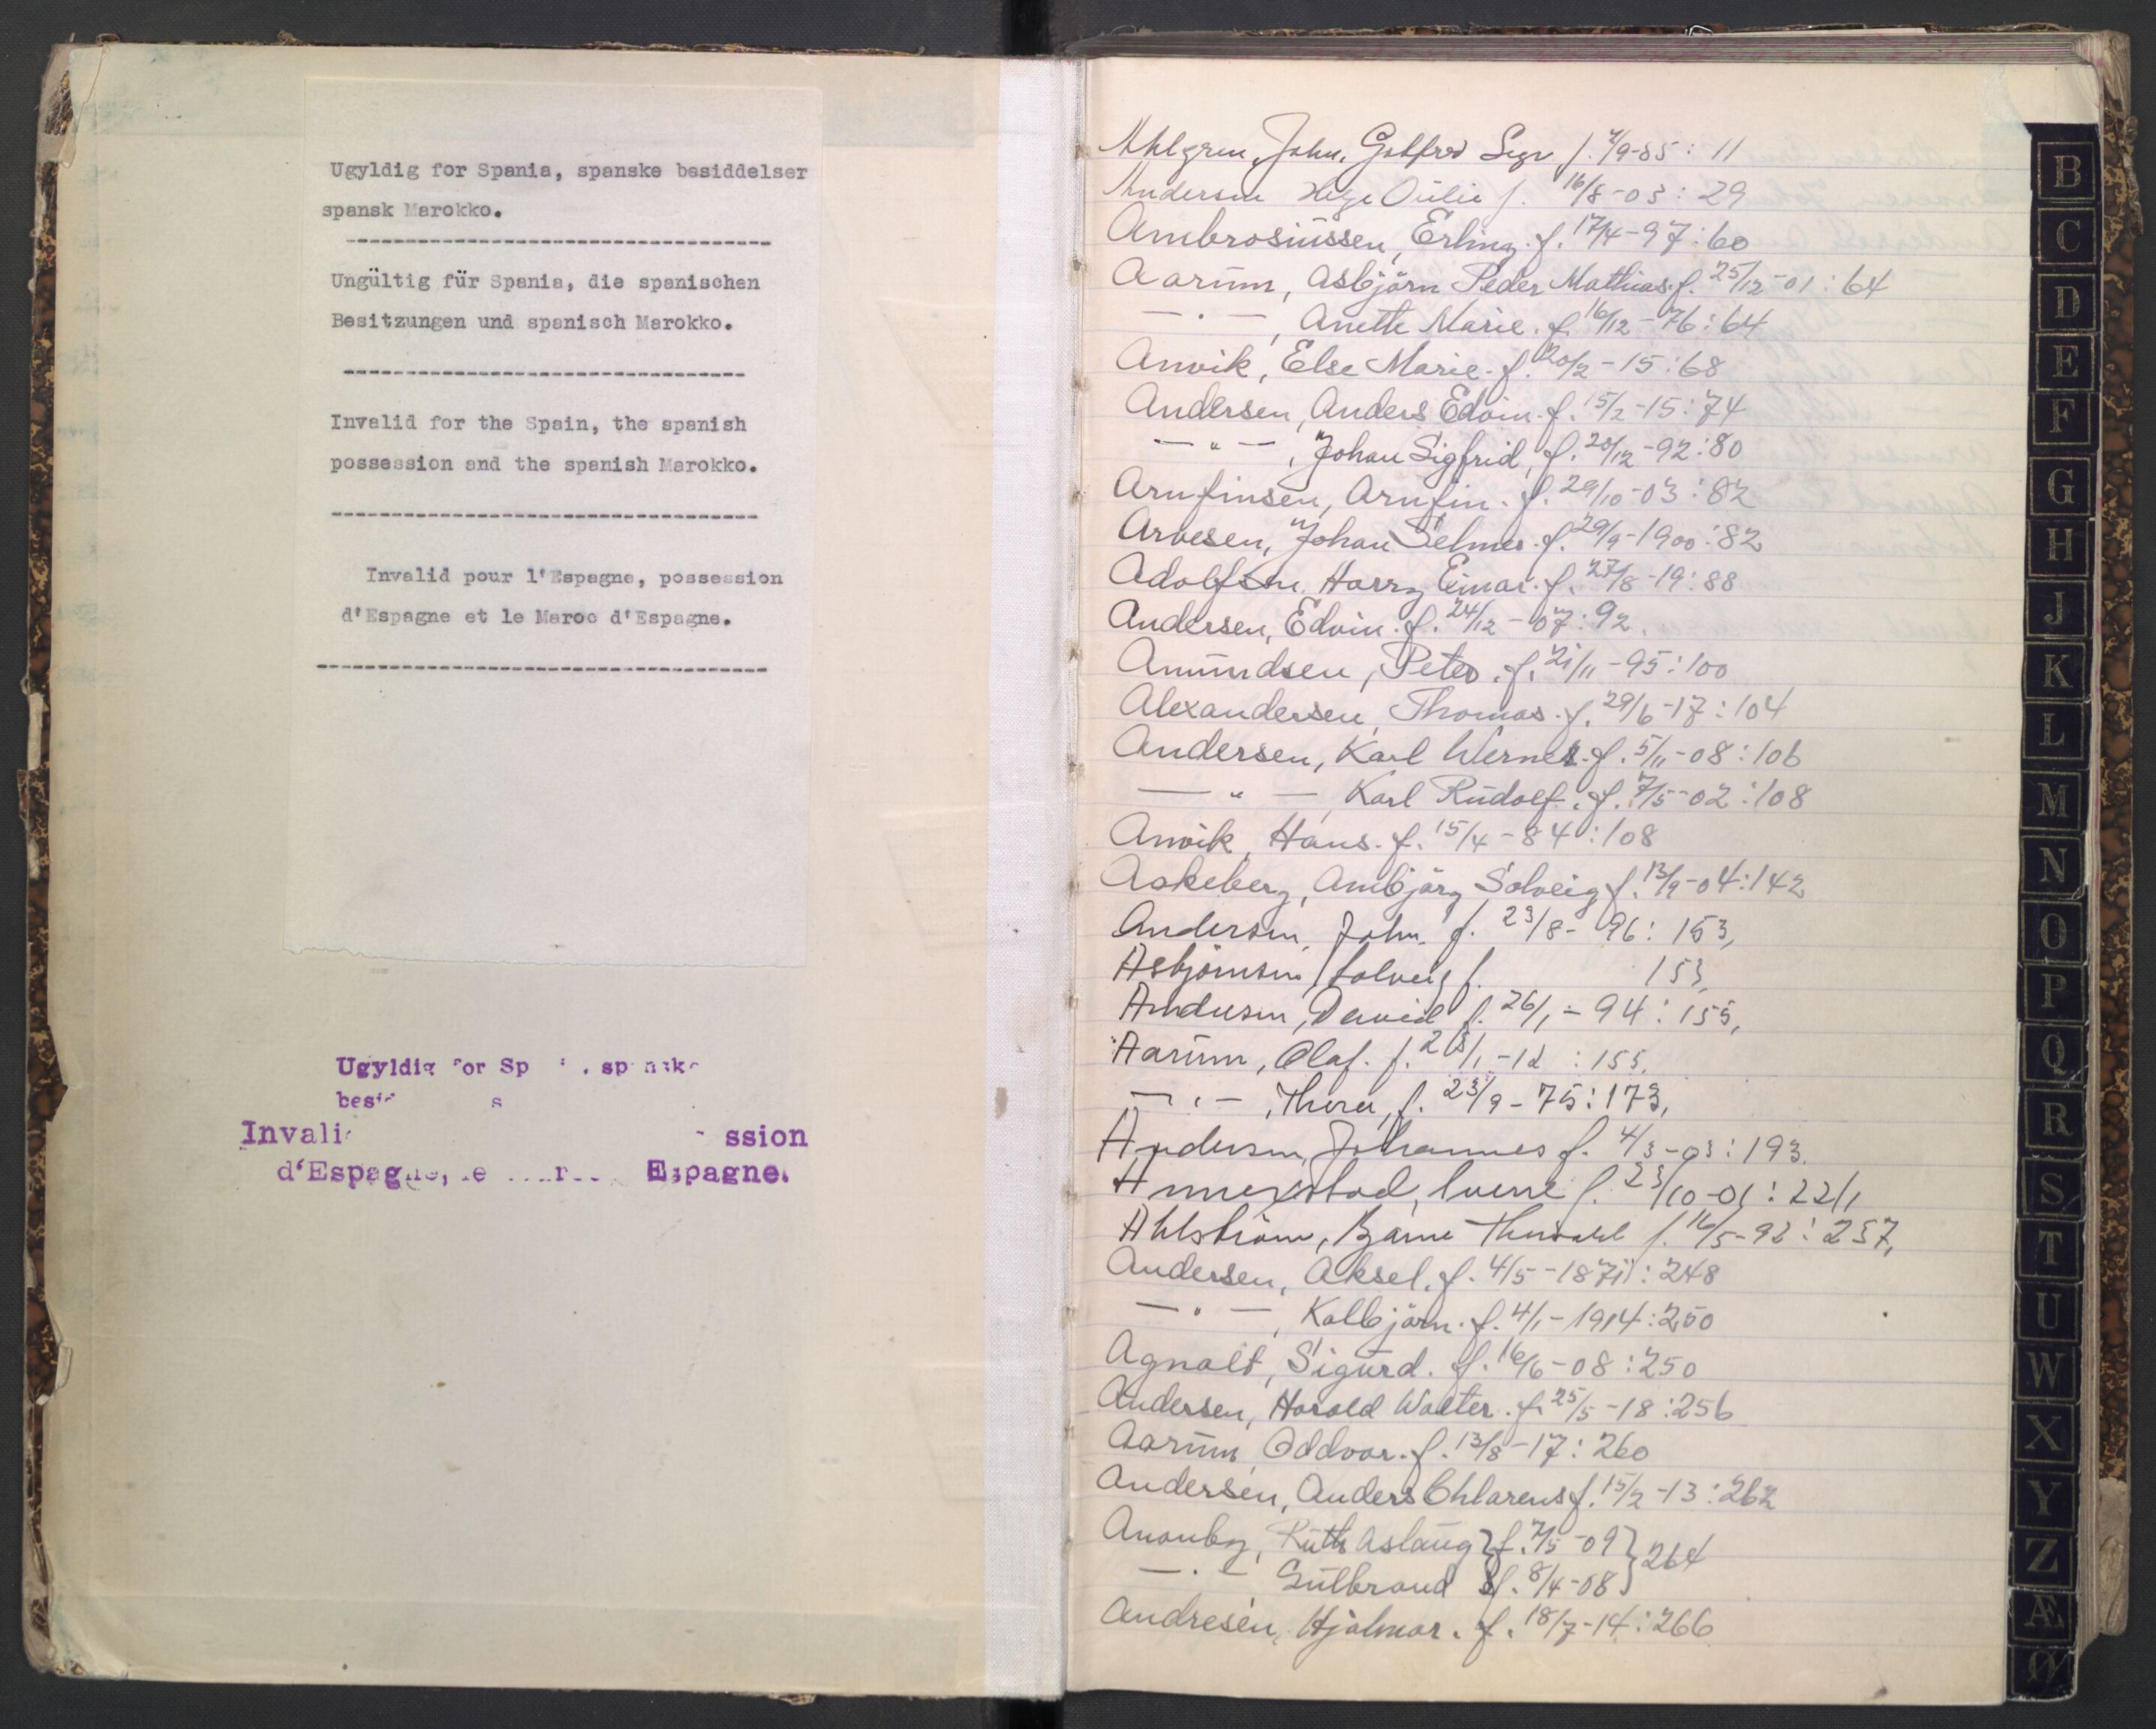 Ugyldig for Spania, spanske besiddelser
spansk Marokko.
Ungültig für Spania, die spanischen
Besitzungen und spanisch Marokko.
Invalid for the Spain, the spanish
possession and the spanish Marokko.
Invalid pour l'Espagne, possession
d'Espagne et le Maroc d'Espagne.
Ugyldig for
Invali ssion
d'Espagne, Espagne.
Ahlgren, John, f. 7/9-85: 11
Andersen f. 16/8-03: 29
Ambrosiussen, Erling. f. 17/4-97: 60
Aarum, Asbjörn Peder Mathias. f. 25/12-01: 64
— · —, Anette Marie. f. 16/12-76: 64
Anvik, Else Marie. f. 20/2-15: 68
Andersen, Anders Edvin. f. 15/2-15: 74
— " —, Johan Sigfrid, f. 28/12-92: 80
Arnfinsen, Arnfin. f. 29/10-03: 82
Arvesen, Johan Selmer. f. 29/9-1900: 82
Adolfsen, Harry Einar. f. 27/8-19: 88
Andersen, Edvin. f. 24/12-07: 92.
Amundsen, Peter. f. 21/11-95: 100
Alexandersen, Thomas. f. 29/6-17: 104
Andersen, Karl Werner. f. 5/11-08: 106
— " —, Karl Rudolf. f. 7/5-02: 108
Anvik, Hans. f. 15/4-84: 108
Askeberg, Solveig f. 13/9-04: 142
Andersen, John. f. 23/8-96: 153,
Asbjörnsen, Solveig f. 153,
Andersen, David f. 26/1-94: 155,
Aarum, Olaf. f. -12: 155,
— · —, Thora, f. 23/9-75: 173,
Andersen, Johannes f. 4/3-03: 193.
f. 23/10-01: 221
Ahlström, Bjarne f. 16/5-92: 237,
Andersen, Aksel. f. 4/5-1871: 248
— " —, Kolbjörn. f. 4/1-1914: 250
Agnalt, Sigurd. f. 16/6-08: 250
Andersen, Harald Walter. f. 25/5-18: 256
Aarum, Oddvar. f. 13/8-17: 260
Andersen, Anders Chlarens f. 15/2-13: 262
Ruth Aslaug f. 7/5-09 } 264
— · — Gulbrand f. 8/4-08
Andresen, Hjalmar. f. 18/7-14: 266
B
C
D
E
F
G
H
J
K
L
M
N
O
P
Q
R
S
T
U
W
X
Y
Z
Æ
Ø